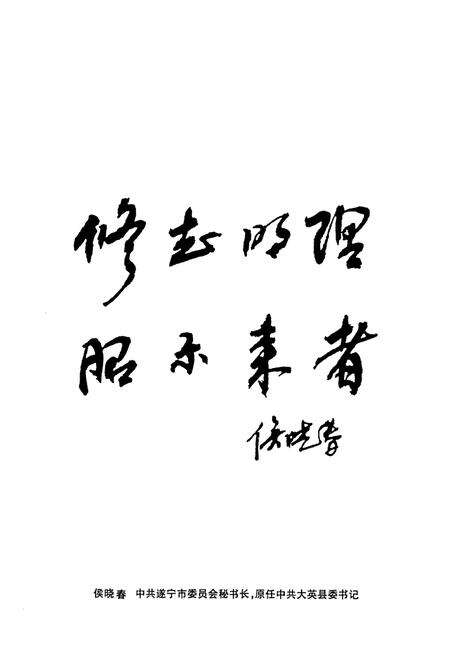 修志明理
昭示来者
侯晓春
侯晓春 中共遂宁市委员会秘书长,原任中共大英县委书记